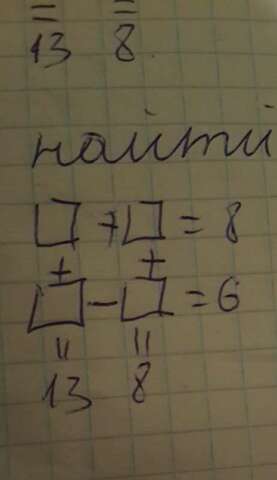 = =
13 8
найти
□ + □ = 8
± +
□ - □ = 6
= =
13 8